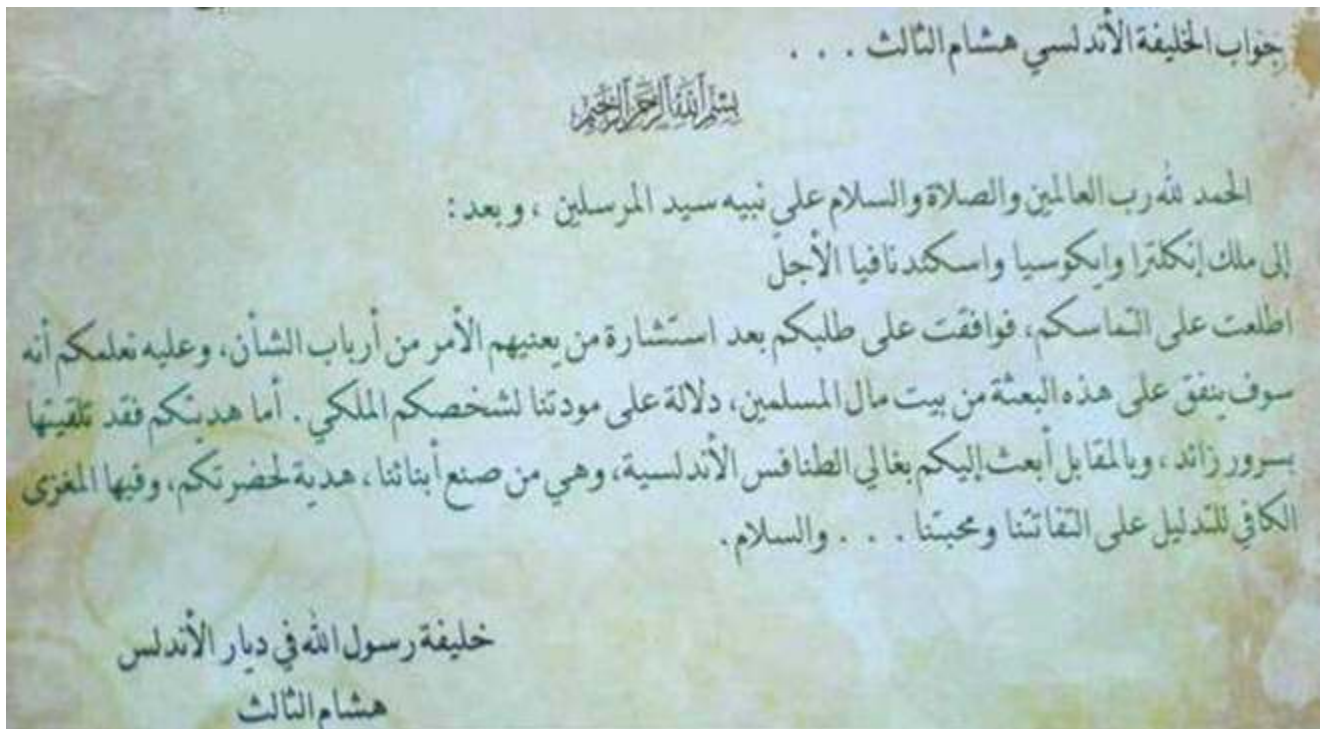 جواب الخليفة الأندلسي هشام الثالث . . .
بسم الله الرحمن الرحيم
الحمد لله رب العالمين والصلاة والسلام على نبيه سيد المرسلين ، و بعد :
إلى ملك إنكلترا وايكوسيا واسكندنافيا الأجلّ
اطلعت على التماسكم، فوافقت على طلبكم بعد استشارة من يعنيهم الأمر من أرباب الشأن، وعليه نعلمكم أنه
سوف ينفق على هذه البعثة من بيت مال المسلمين، دلالة على مودتنا لشخصكم الملكي . أما هديتكم فقد تلقيتها
بسرور زائد ، وبالمقابل أبعث إليكم بغالي الطنافس الأندلسية، وهي من صنع أبنائنا ، هدية لحضرتكم، وفيها المغزى
الكافي للتدليل على التفاتتنا ومحبتنا . . . والسلام .
خليفة رسول الله في ديار الأندلس
هشام الثالث